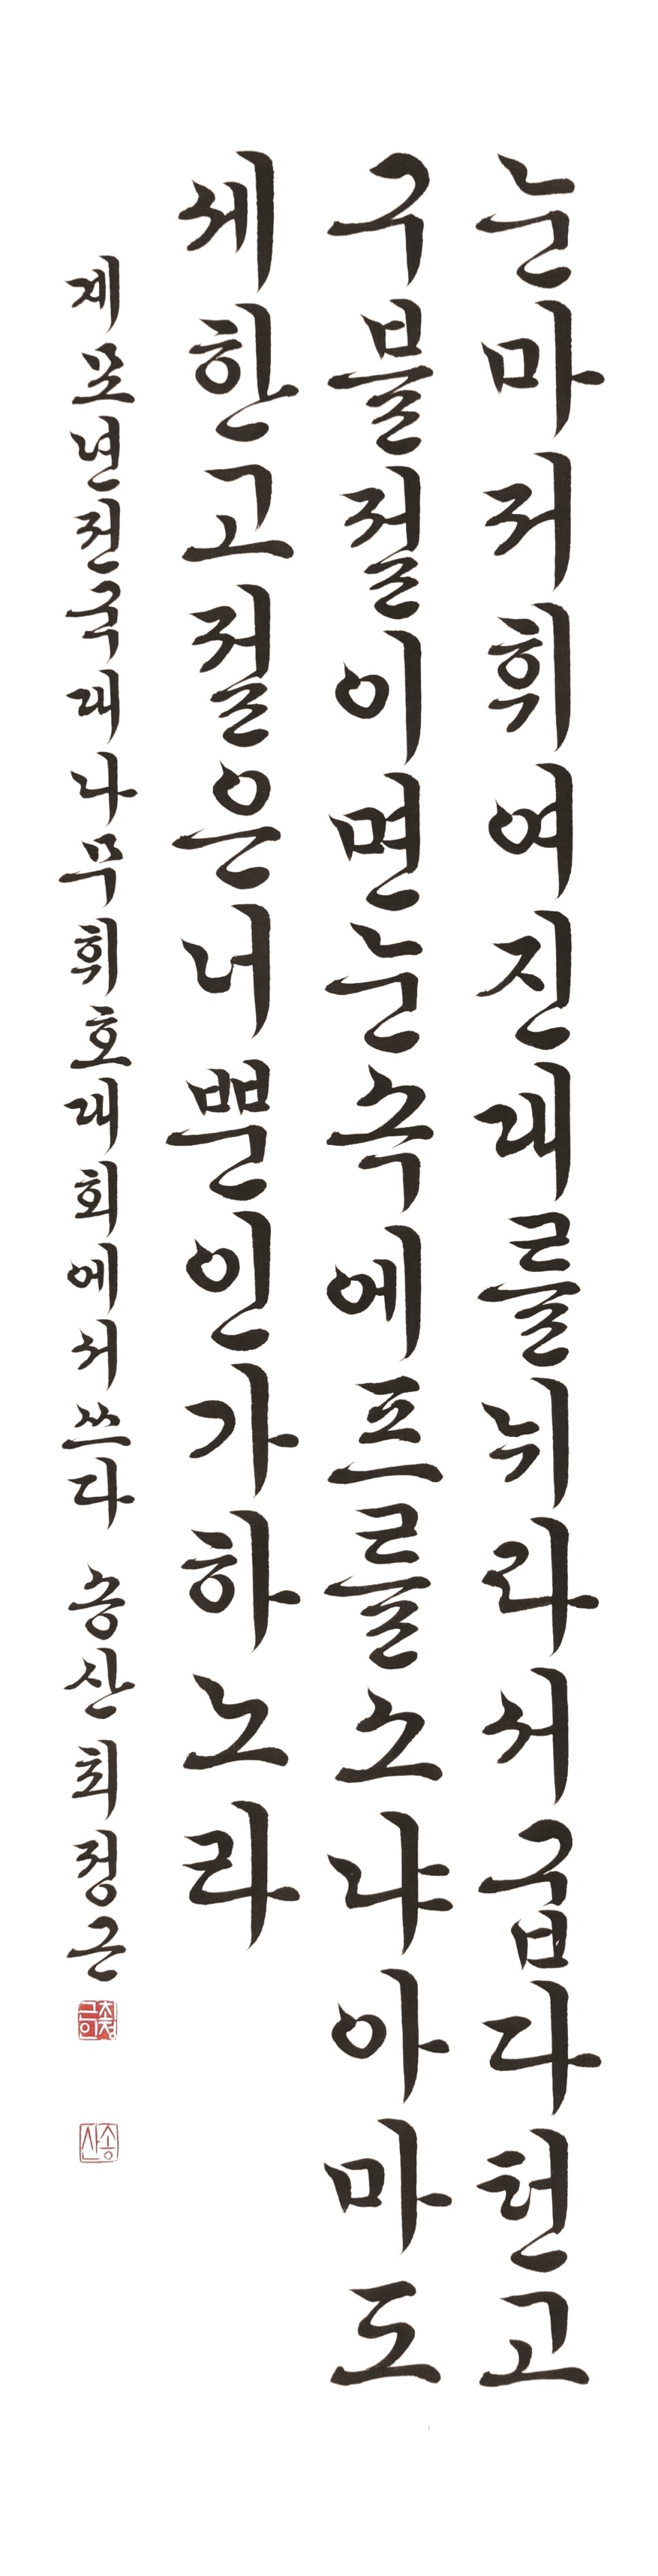 눈마저휘여진대를뉘라서굽다턴고
구블절이면눈속에프를소냐아마도
세한고절은너뿐인가하노라
계묘년전국대나무휘호대회에서쓰다 송산최정근
최정근인
송산